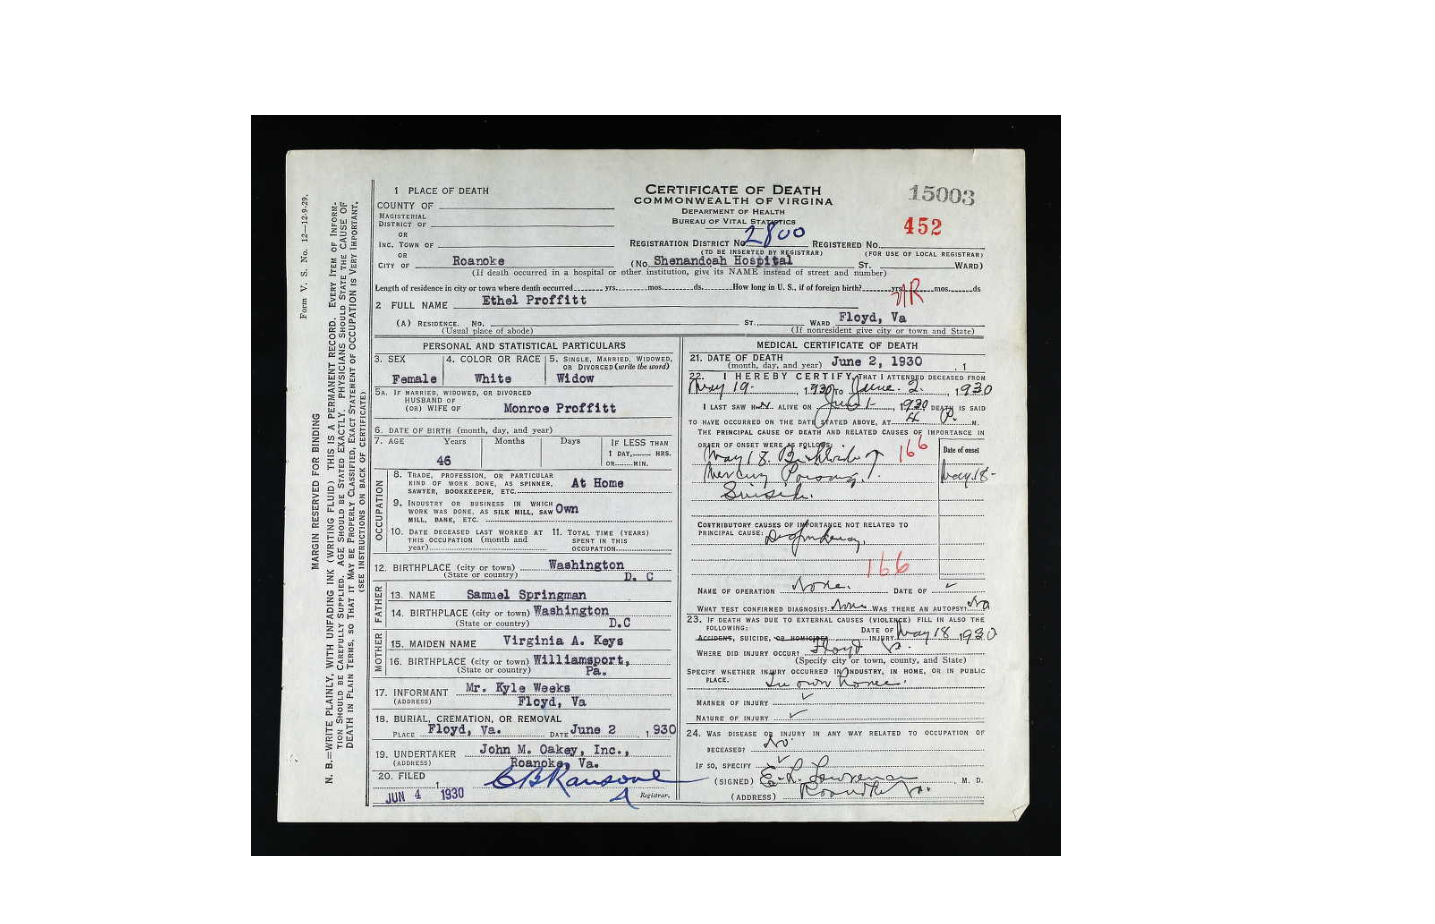 Form V. S. No. 12—12-9-29.
MARGIN RESERVED FOR BINDING
N. B.—WRITE PLAINLY, WITH UNFADING INK (WRITING FLUID) THIS IS A PERMANENT RECORD. EVERY ITEM OF INFORM-
TION SHOULD BE CAREFULLY SUPPLIED. AGE SHOULD BE STATED EXACTLY. PHYSICIANS SHOULD STATE THE CAUSE OF
DEATH IN PLAIN TERMS, SO THAT IT MAY BE PROPERLY CLASSIFIED. EXACT STATEMENT OF OCCUPATION IS VERY IMPORTANT.
(SEE INSTRUCTIONS ON BACK OF CERTIFICATE)
CERTIFICATE OF DEATH
COMMONWEALTH OF VIRGINA
DEPARTMENT OF HEALTH
BUREAU OF VITAL STATISTICS
15003
452
1 PLACE OF DEATH
COUNTY OF
MAGISTERIAL
DISTRICT OF
OR
INC. TOWN OF
REGISTRATION DISTRICT No. 2800 REGISTERED No.
(TO BE INSERTED BY REGISTRAR) (FOR USE OF LOCAL REGISTRAR)
OR
CITY OF Roanoke (No. Shenandoah Hospital ST. WARD)
(If death occurred in a hospital or other institution, give its NAME instead of street and number)
Length of residence in city or town where death occurred yrs. mos. ds. How long in U. S., if of foreign birth? yrs. mos. ds
NR
2 FULL NAME Ethel Proffitt
(A) RESIDENCE. No. ST. WARD Floyd, Va
(Usual place of abode) (If nonresident give city or town and State)
PERSONAL AND STATISTICAL PARTICULARS
3. SEX 4. COLOR OR RACE 5. SINGLE, MARRIED, WIDOWED,
OR DIVORCED (write the word)
Female White Widow
5A. IF MARRIED, WIDOWED, OR DIVORCED
HUSBAND OF
(OR) WIFE OF Monroe Proffitt
6. DATE OF BIRTH (month, day, and year)
7. AGE Years Months Days IF LESS THAN
1 DAY, HRS.
46 OR MIN.
OCCUPATION
8. TRADE, PROFESSION, OR PARTICULAR
KIND OF WORK DONE, AS SPINNER, At Home
SAWYER, BOOKKEEPER, ETC.
9. INDUSTRY OR BUSINESS IN WHICH
WORK WAS DONE, AS SILK MILL, SAW Own
MILL, BANK, ETC.
10. DATE DECEASED LAST WORKED AT 11. TOTAL TIME (YEARS)
THIS OCCUPATION (month and SPENT IN THIS
year) OCCUPATION
12. BIRTHPLACE (city or town) Washington
(State or country) D. C
FATHER
13. NAME Samuel Springman
14. BIRTHPLACE (city or town) Washington
(State or country) D.C
MOTHER
15. MAIDEN NAME Virginia A. Keys
16. BIRTHPLACE (city or town) Williamsport,
(State or country) Pa.
17. INFORMANT Mr. Kyle Weeks
(ADDRESS) Floyd, Va
18. BURIAL, CREMATION, OR REMOVAL
PLACE Floyd, Va. DATE June 2, 1930
19. UNDERTAKER John M. Oakey, Inc.,
(ADDRESS) Roanoke, Va.
20. FILED C B Ransone
JUN 4 1930 Registrar.
MEDICAL CERTIFICATE OF DEATH
21. DATE OF DEATH
(month, day, and year) June 2, 1930, 1
22. I HEREBY CERTIFY, THAT I ATTENDED DECEASED FROM
May 19. 1930 TO June. 2, 1930
I LAST SAW HER ALIVE ON June 1, 1930 DEATH IS SAID
TO HAVE OCCURRED ON THE DATE STATED ABOVE, AT 4 P. M.
THE PRINCIPAL CAUSE OF DEATH AND RELATED CAUSES OF IMPORTANCE IN
ORDER OF ONSET WERE AS FOLLOWS: Date of onset
May 18. Bichloride of 166
Mercury May 18-
Suicide.
CONTRIBUTORY CAUSES OF IMPORTANCE NOT RELATED TO
PRINCIPAL CAUSE:
166
NAME OF OPERATION None. DATE OF
WHAT TEST CONFIRMED DIAGNOSIS? None WAS THERE AN AUTOPSY? No
23. IF DEATH WAS DUE TO EXTERNAL CAUSES (VIOLENCE) FILL IN ALSO THE
FOLLOWING: DATE OF
ACCIDENT, SUICIDE, OR HOMICIDE INJURY May 18, 1930
WHERE DID INJURY OCCUR? Floyd Va.
(Specify city or town, county, and State)
SPECIFY WHETHER INJURY OCCURRED IN INDUSTRY, IN HOME, OR IN PUBLIC
PLACE. In own home.
MANNER OF INJURY
NATURE OF INJURY
24. WAS DISEASE OR INJURY IN ANY WAY RELATED TO OCCUPATION OF
DECEASED? No
IF SO, SPECIFY
(SIGNED) E. L. M. D.
(ADDRESS) Roanoke Va.